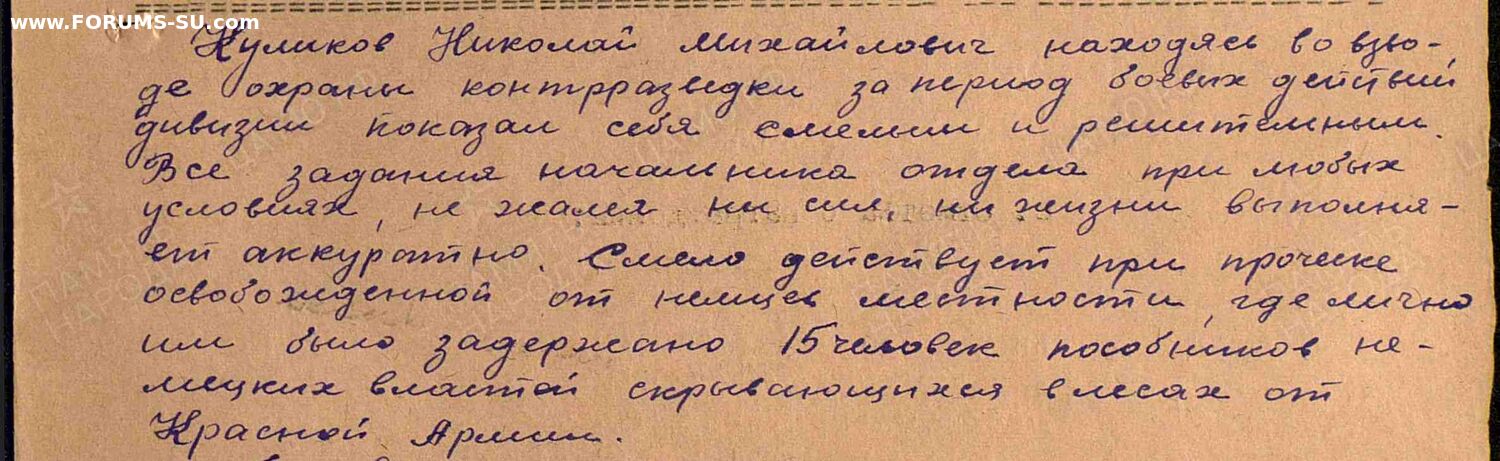 www.FORUMS-SU.com
Куликов Николай Михайлович находясь во взво-
де охраны контрразведки за период боевых действий
дивизии показал себя смелым и решительным.
Все задания начальника отдела при любых
условиях, не жалея ни сил, ни жизни выполня-
ет аккуратно. Смело действует при прочёске
освобожденной от немцев местности, где лично
им было задержано 15 человек пособников не-
мецких властей скрывающихся в лесах от
Красной Армии.